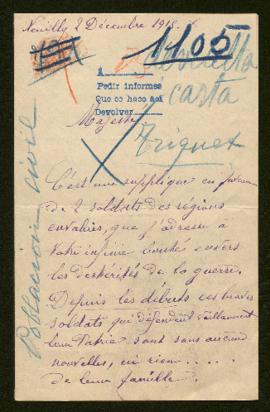 Neuilly 2 Décembre 1915.
1105
A
Pedir informes
Que se hace así
Devolver
carta
Majesté
Triquet
Población civil
C'est une supplique en faveur
de 2 soldats des régions
envahies, que j'adresse à
Votre infinie bonté envers
les déshérités de la guerre.
Depuis les débuts ces braves
soldats qui défendent vaillamment
leur Patrie sont sans aucune
nouvelles, ou rien.....
de leur famille.